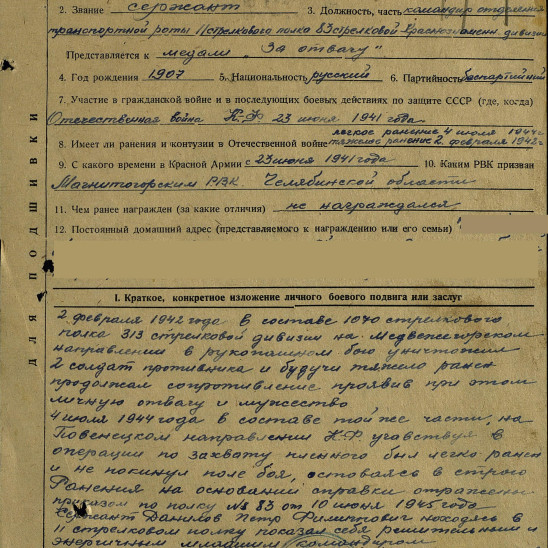 2. Звание сержант 3. Должность, часть командир отделения
транспортной роты 11 стрелкового полка 83 стрелковой Краснознамен. дивизии
Представляется к медали „За отвагу"
4. Год рождения 1907 5. Национальность русский 6. Партийность беспартийный
7. Участие в гражданской войне и в последующих боевых действиях по защите СССР (где, когда)
Отечественная война К-Ф 23 июня 1941 года
легкое ранение 4 июля 1944 г
8. Имеет ли ранения и контузии в Отечественной войне тяжелое ранение 2 февраля 1942 г
9. С какого времени в Красной Армии с 23 июня 1941 года 10. Каким РВК призван
Магнитогорским РВК Челябинской области
11. Чем ранее награжден (за какие отличия) не награждался
12. Постоянный домашний адрес (представляемого к награждению или его семьи)
ДЛЯ ПОДШИВКИ
I. Краткое, конкретное изложение личного боевого подвига или заслуг
2 февраля 1942 года в составе 1070 стрелкового
полка 313 стрелковой дивизии на Медвежегорском
направлении в рукопашном бою уничтожил
2 солдат противника и будучи тяжело ранен
продолжал сопротивление проявив при этом
личную отвагу и мужество
4 июля 1944 года в составе той же части, на
Повенецком направлении К-Ф учавствуя в
операции по захвату пленного был легко ранен
и не покинул поле боя, оставаясь в строю
Ранения на основании справки отражены
приказом по полку № 83 от 10 июня 1945 года
Сержант Данилов Петр находясь в
11 стрелковом полку показал себя решительным и
энергичным младшим командиром